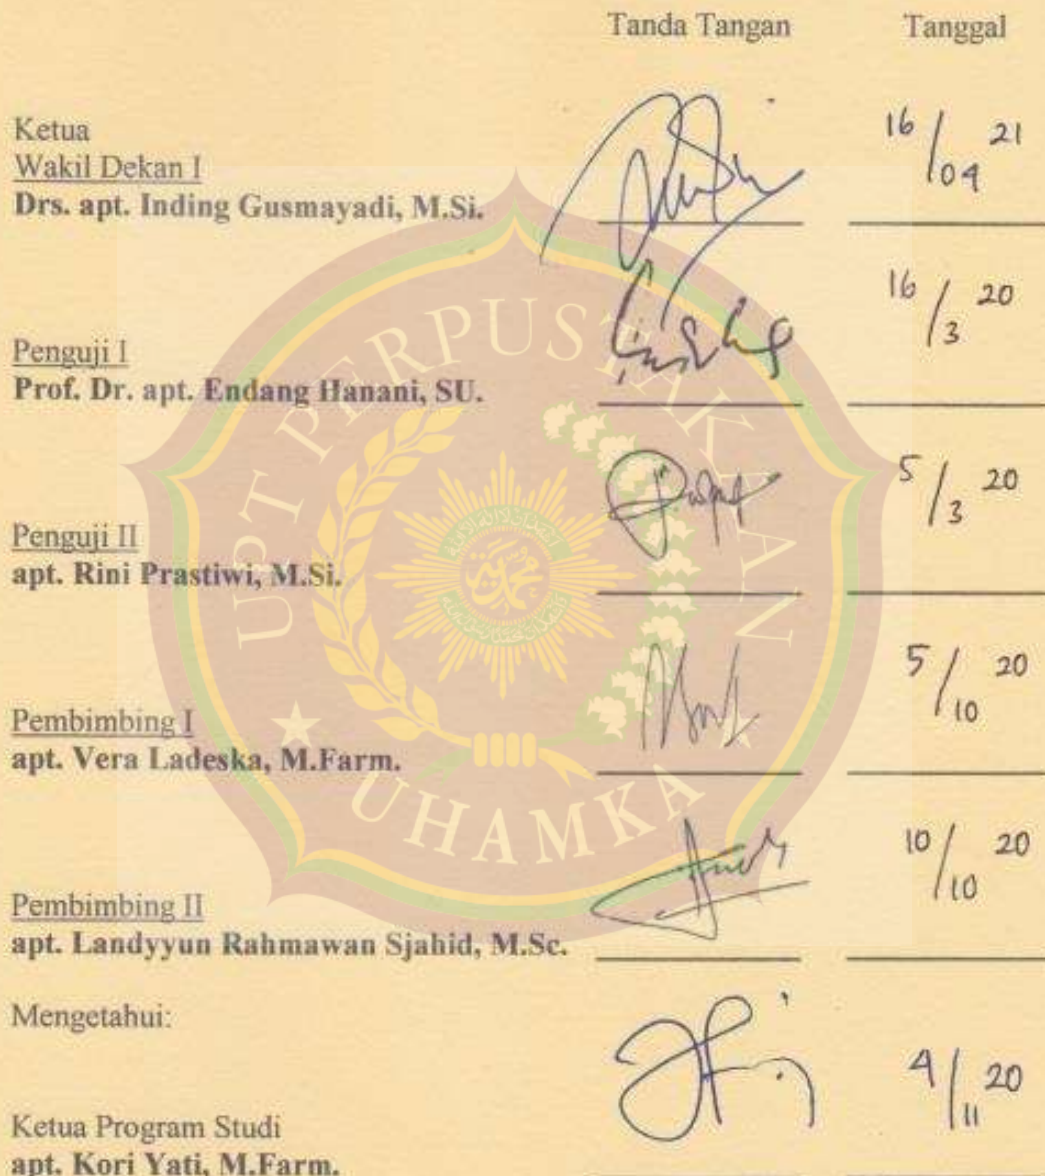 Tanda Tangan Tanggal
Ketua
Wakil Dekan I
Drs. apt. Inding Gusmayadi, M.Si.
16/04 21
Penguji I
Prof. Dr. apt. Endang Hanani, SU.
16/3 20
Penguji II
apt. Rini Prastiwi, M.Si.
5/3 20
Pembimbing I
apt. Vera Ladeska, M.Farm.
5/10 20
Pembimbing II
apt. Landyyun Rahmawan Sjahid, M.Sc.
10/10 20
Mengetahui:
Ketua Program Studi
apt. Kori Yati, M.Farm.
4/11 20
UPT PERPUSTAKAAN
UHAMKA